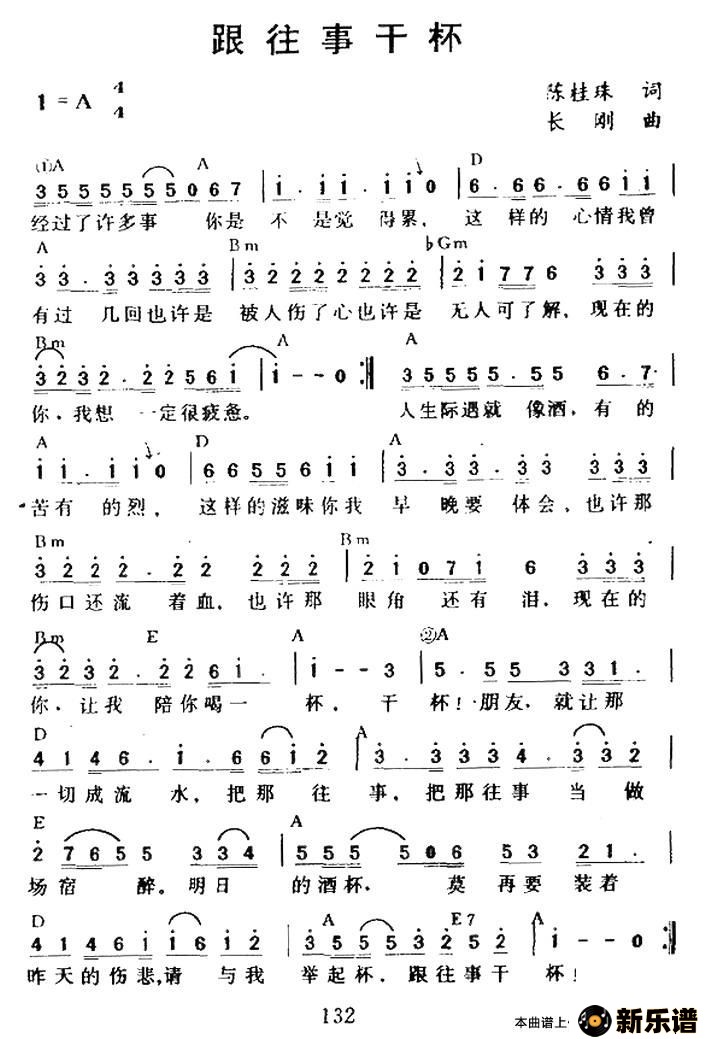 跟往事干杯
1=A 4/4
陈桂珠 词
长刚 曲
(1)A A D
3555555067 | i·ii·iii0 | 6·66·666ii |
经过了许多事 你是不是觉得累, 这样的心情我曾
A Bm ♭Gm
33·33333 | 3222222222 | 2i776 333 |
有过 几回也许是 被人伤了心也许是 无人可了解, 现在的
Bm A A
3232·22561 | i--0 :| 35555·55 6·7·
你,我想 一定很疲惫。 人生际遇就 像酒,有的
A D A
ii·ii0 | 6655611 | 3·33·3 333 |
苦有 的烈, 这样的滋味你我早 晚要 体会,也许那
Bm Bm
3222·22 222 | 21071 6 333 |
伤口还流 着血,也许那 眼角 还有 泪,现在的
Bm E A ②A
3232·2261· | i--3 | 5·55 331· |
你,让我 陪你喝一 杯, 干 杯!朋友,就让那
D A
4146·1·66112 | 3·3334·332 |
一切成流 水,把那 往 事,把那往事 当 做
E A
2 7655 334 | 555 506 53 21· |
场宿 醉。明日 的酒杯, 莫 再要 装着
D A E7 A
41461 1612 | 3555532 52 | i--0 :|
昨天的伤悲,请 与我 举起杯, 跟往事干 杯!
132
本曲谱上·新乐谱